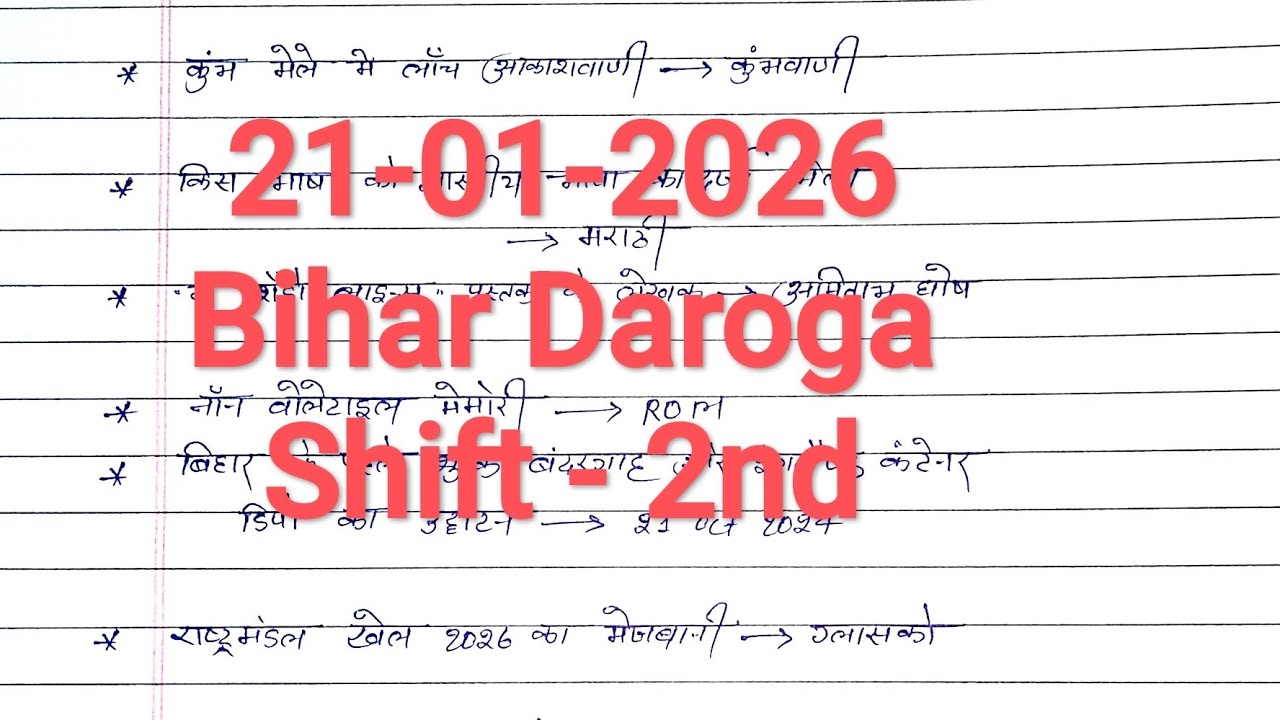 * कुंभ मेले मे लॉच आकाशवाणी → कुंभवाणी
21-01-2026
* किस भाषा को भाषा का दर्जा
→ मराठी
* शैडो लाइन्स" पुस्तक के लेखक → अमिताभ घोष
Bihar Daroga
* नॉन वोलेटाइल मेमोरी → ROM
Shift - 2nd
* बिहार के पहले शुष्क बंदरगाह और कंटेनर
डिपो का उद्घाटन → 21 oct 2024
* राष्ट्रमंडल खेल 2026 का मेजबानी → ग्लासको